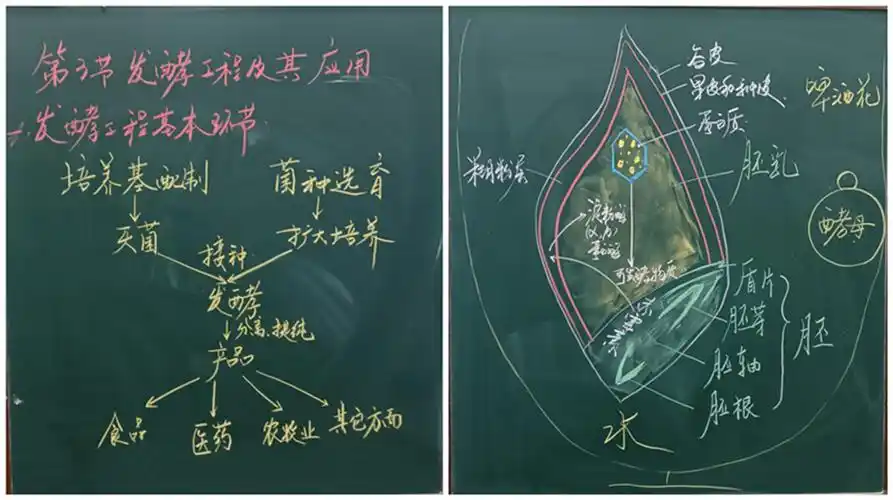 第3节 发酵工程及其应用
一.发酵工程基本环节
培养基配制 菌种选育
灭菌 扩大培养
接种
发酵
分离.提纯
产品
食品 医药 农牧业 其它方面
谷皮
果皮和种皮
蛋白质
啤酒花
糊粉层
胚乳
酵母
淀粉酶
蛋白酶
可发酵物质
赤霉素
盾片
胚芽
胚轴
胚根
胚
水